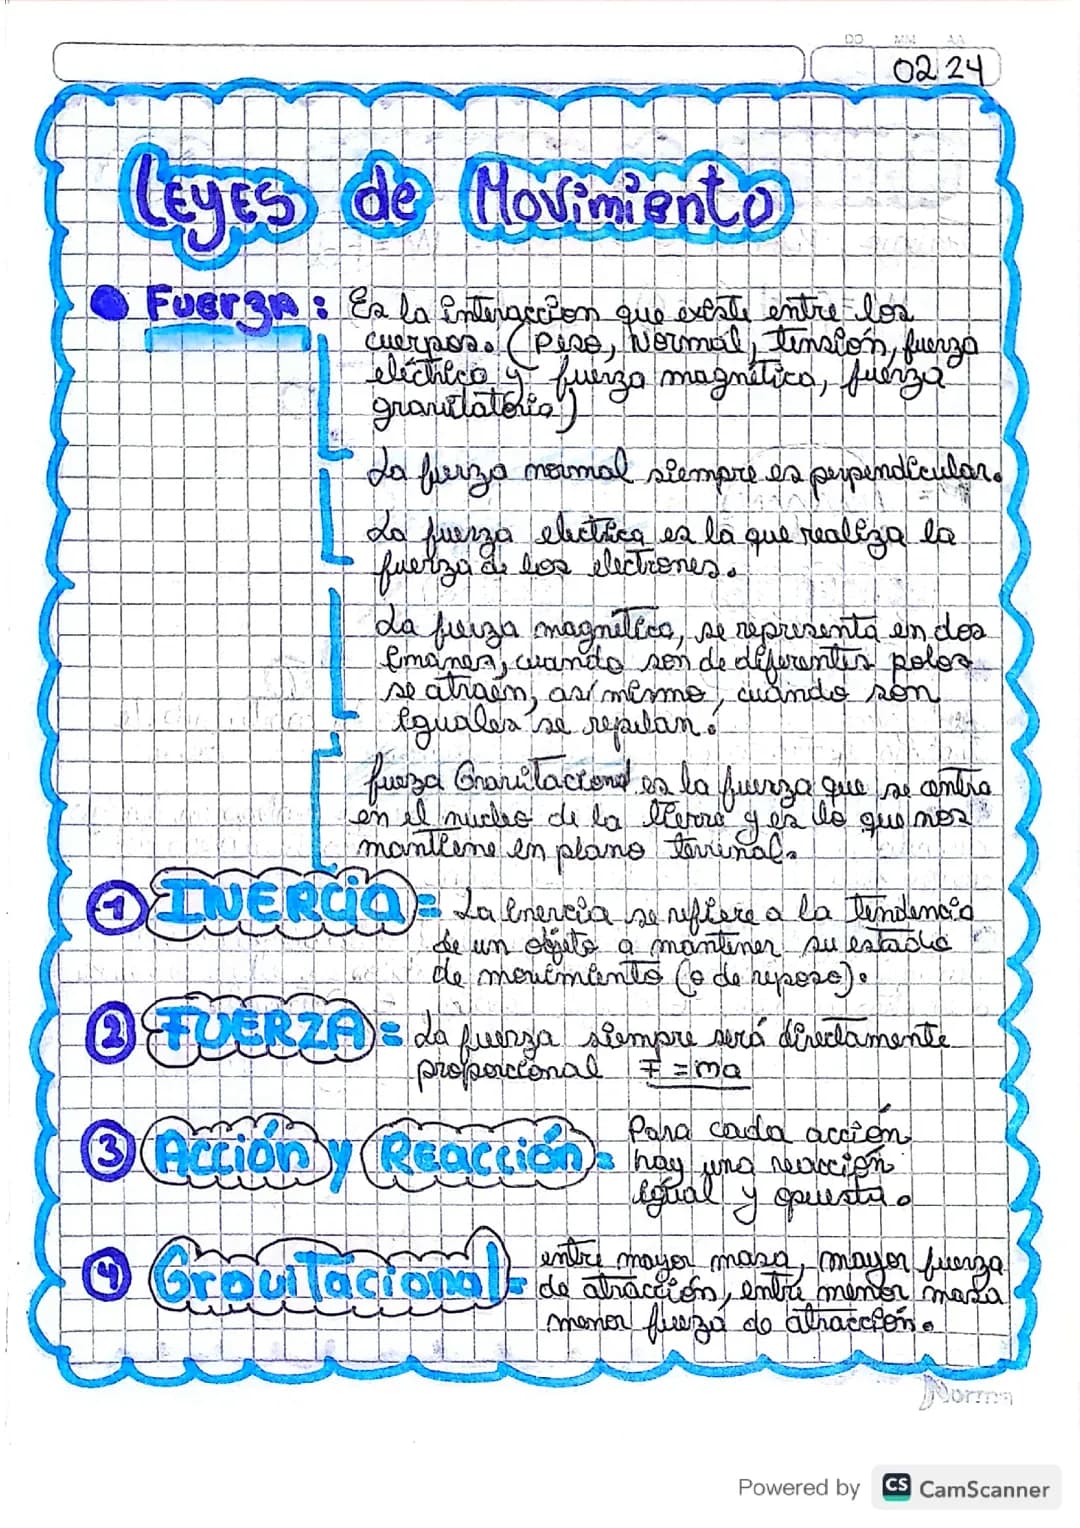 DD MM AA
02 24
LEYES de Movimiento
FUERZA: Es la interaccion que existe entre los
cuerpos. (Peso, Normal, tensión, fuerza
eléctrica y fuerza magnética, fuerza
gravitatoria)
La fuerza normal siempre es perpendicular.
La fuerza electrica es la que realiza la
fuerza de los electrones.
La fuerza magnética, se representa en dos
imanes, cuando son de diferentes polos
se atraen, así mismo, cuando son
iguales se repelan.
fuerza Gravitacional es la fuerza que se centra
en el nucleo de la tierra y es lo que nos
mantiene en plano terrenal.
1 INERCIA = La inercia se refiere a la tendencia
de un objeto a mantener su estado
de movimiento (o de reposo).
2 FUERZA = La fuerza siempre será directamente
proporcional F = ma
3 Acción y Reacción = Para cada acción
hay una reacción
igual y opuesta.
4 Gravitacional = entre mayor masa, mayor fuerza
de atracción, entre menor masa
menor fuerza de atracción.
Norma
Powered by CS CamScanner